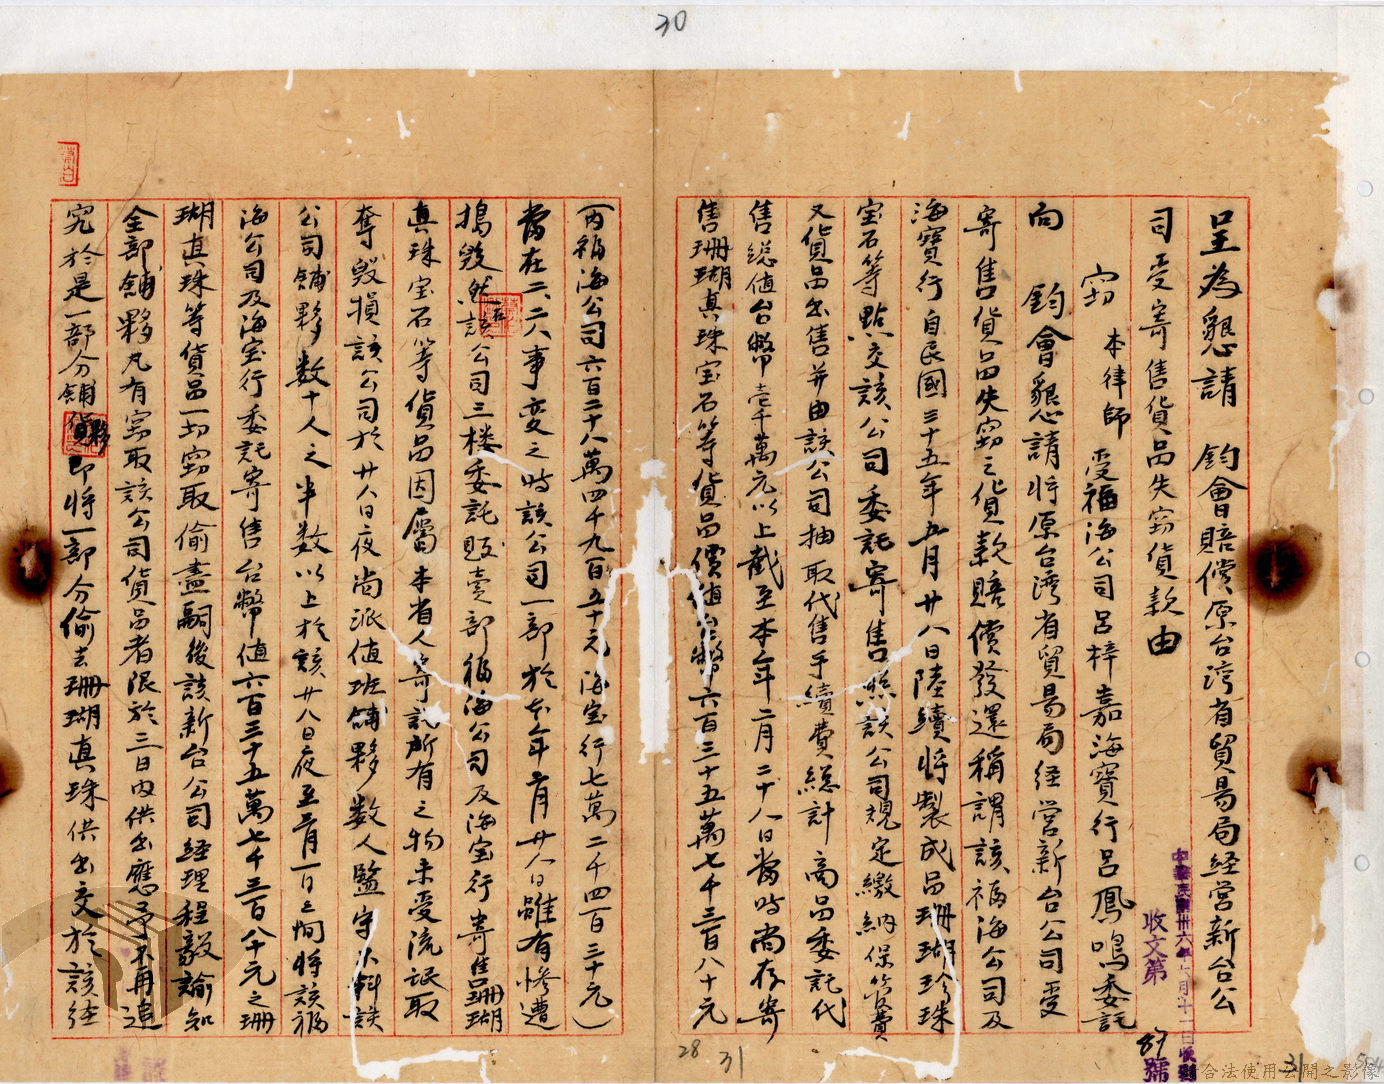 30
呈為懇請 鈞會賠償原台湾省貿易局経営新台公
司受寄售貨品失窃貨款由
窃 本律師 受福海公司呂梓嘉海寶行呂鳳鳴委託
向 鈞會懇請将原台湾省貿易局経営新台公司受
寄售貨品失窃之貨款賠償發還稱謂該福海公司及
海寶行自民國三十五年五月廿八日陸續将製成品珊瑚珍珠
宝石等點交該公司委託寄售照該公司規定繳納保管費
又貨品出售并由該公司抽取代售手續費総計商品委託代
售総值台幣壹千萬元以上截至本年二月二十八日當时尚存寄
售珊瑚真珠宝石等貨品價值台幣六百三十五萬七千三百八十元
(内福海公司六百二十八萬四千九百五十元海宝行七萬二千四百三十元)
當在二二八事変之时該公司一部於本年二月廿八日雖有慘遭
搗毀然該公司三楼委託販賣部福海公司及海宝行寄售珊瑚
真珠宝石等貨品因屬本省人寄託所有之物未受流氓取
奪毀損該公司於廿八日夜尚派值班舖夥数人監守不料該
公司舖夥数十人之半数以上於該廿八日夜至三月一日之间将該福
海公司及海宝行委託寄售台幣值六百三十五萬七千三百八十元之珊
瑚真珠等貨品一切窃取偷盡嗣後該新台公司経理程毅諭知
全部舖夥凡有窃取該公司貨品者限於三日内供出應予不再追
究於是一部分舖夥即将一部分偷去珊瑚真珠供出交於該経
收文第
87
號
28
31
31
合法使用公開之影像